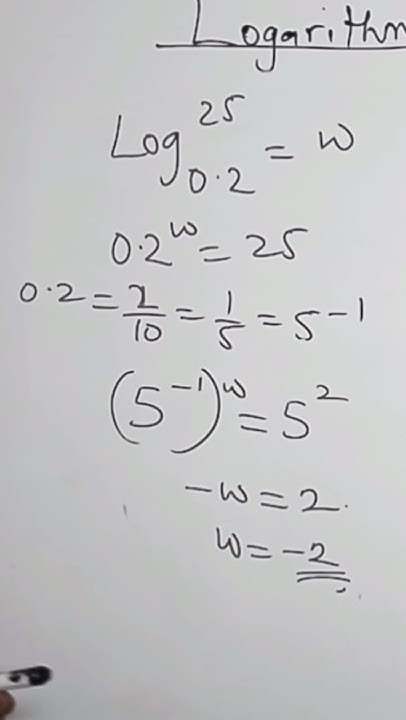 Logarithm
Log₀.₂²⁵ = w
0.2ʷ = 25
0.2 = 2/10 = 1/5 = 5⁻¹
(5⁻¹)ʷ = 5²
-w = 2.
w = -2